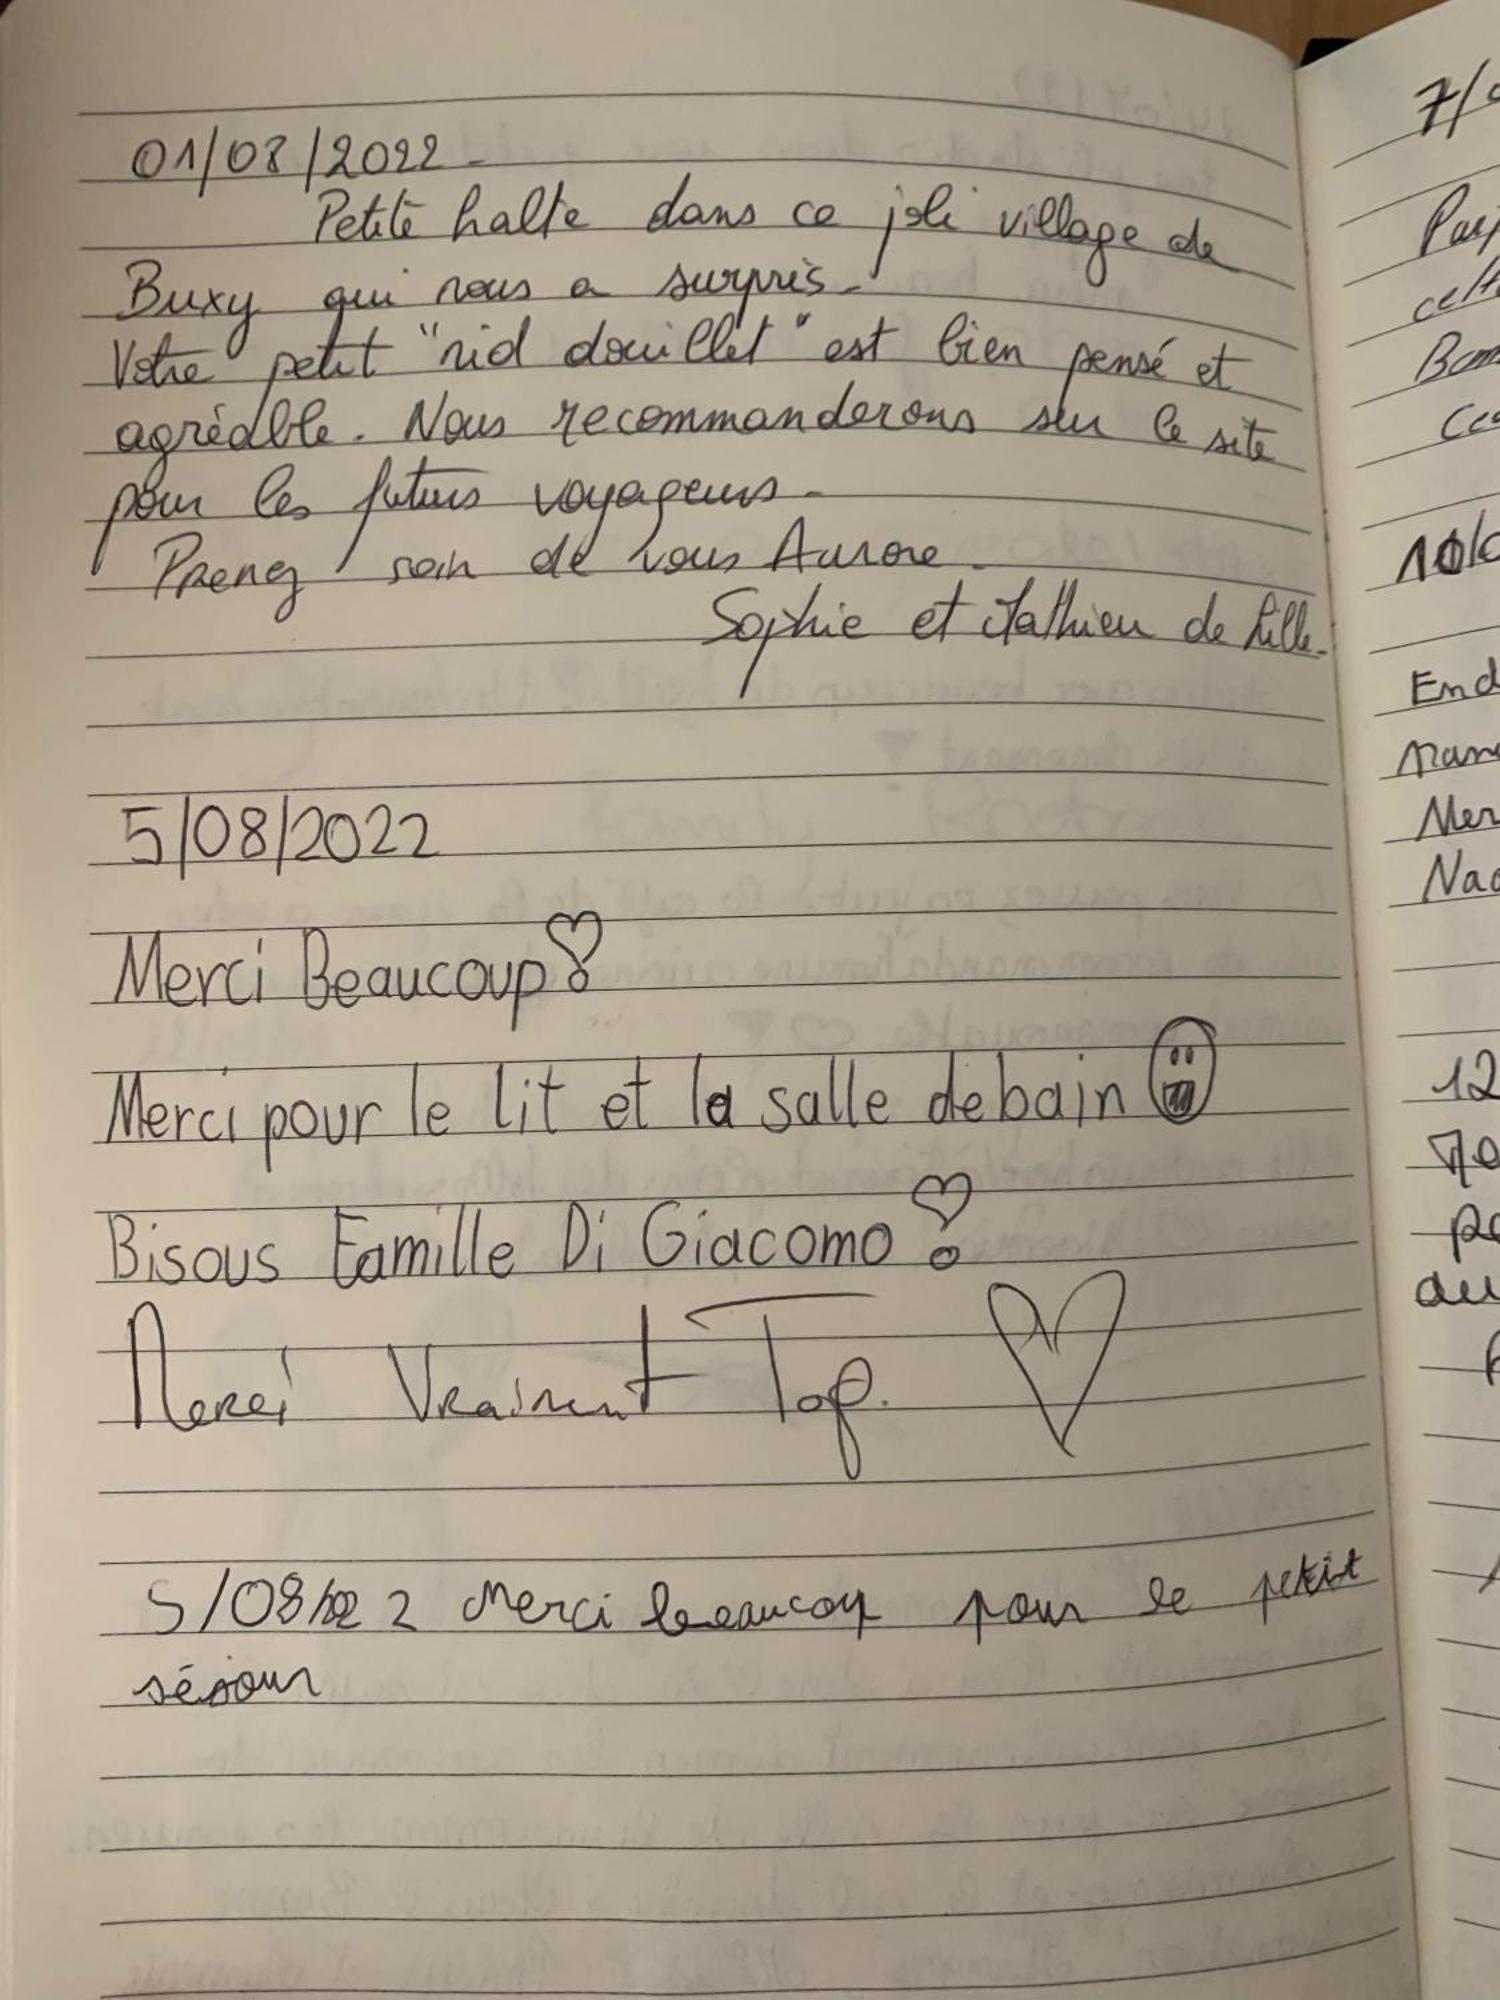 01/08/2022-
Petite halte dans ce joli village de
Buxy qui nous a surpris.
Votre petit "nid douillet" est bien pensé et
agréable. Nous recommanderons sur le site
pour les futurs voyageurs-
Prenez soin de vous Aurore.
Sophie et Mathieu de Lille.
5/08/2022
Merci Beaucoup
Merci pour le lit et la salle de bain
Bisous Famille Di Giacomo
Merci Vraiment Top.
5/08/2022 Merci beaucoup pour le petit
séjour
7/
cett
10/0
End
Mer
12